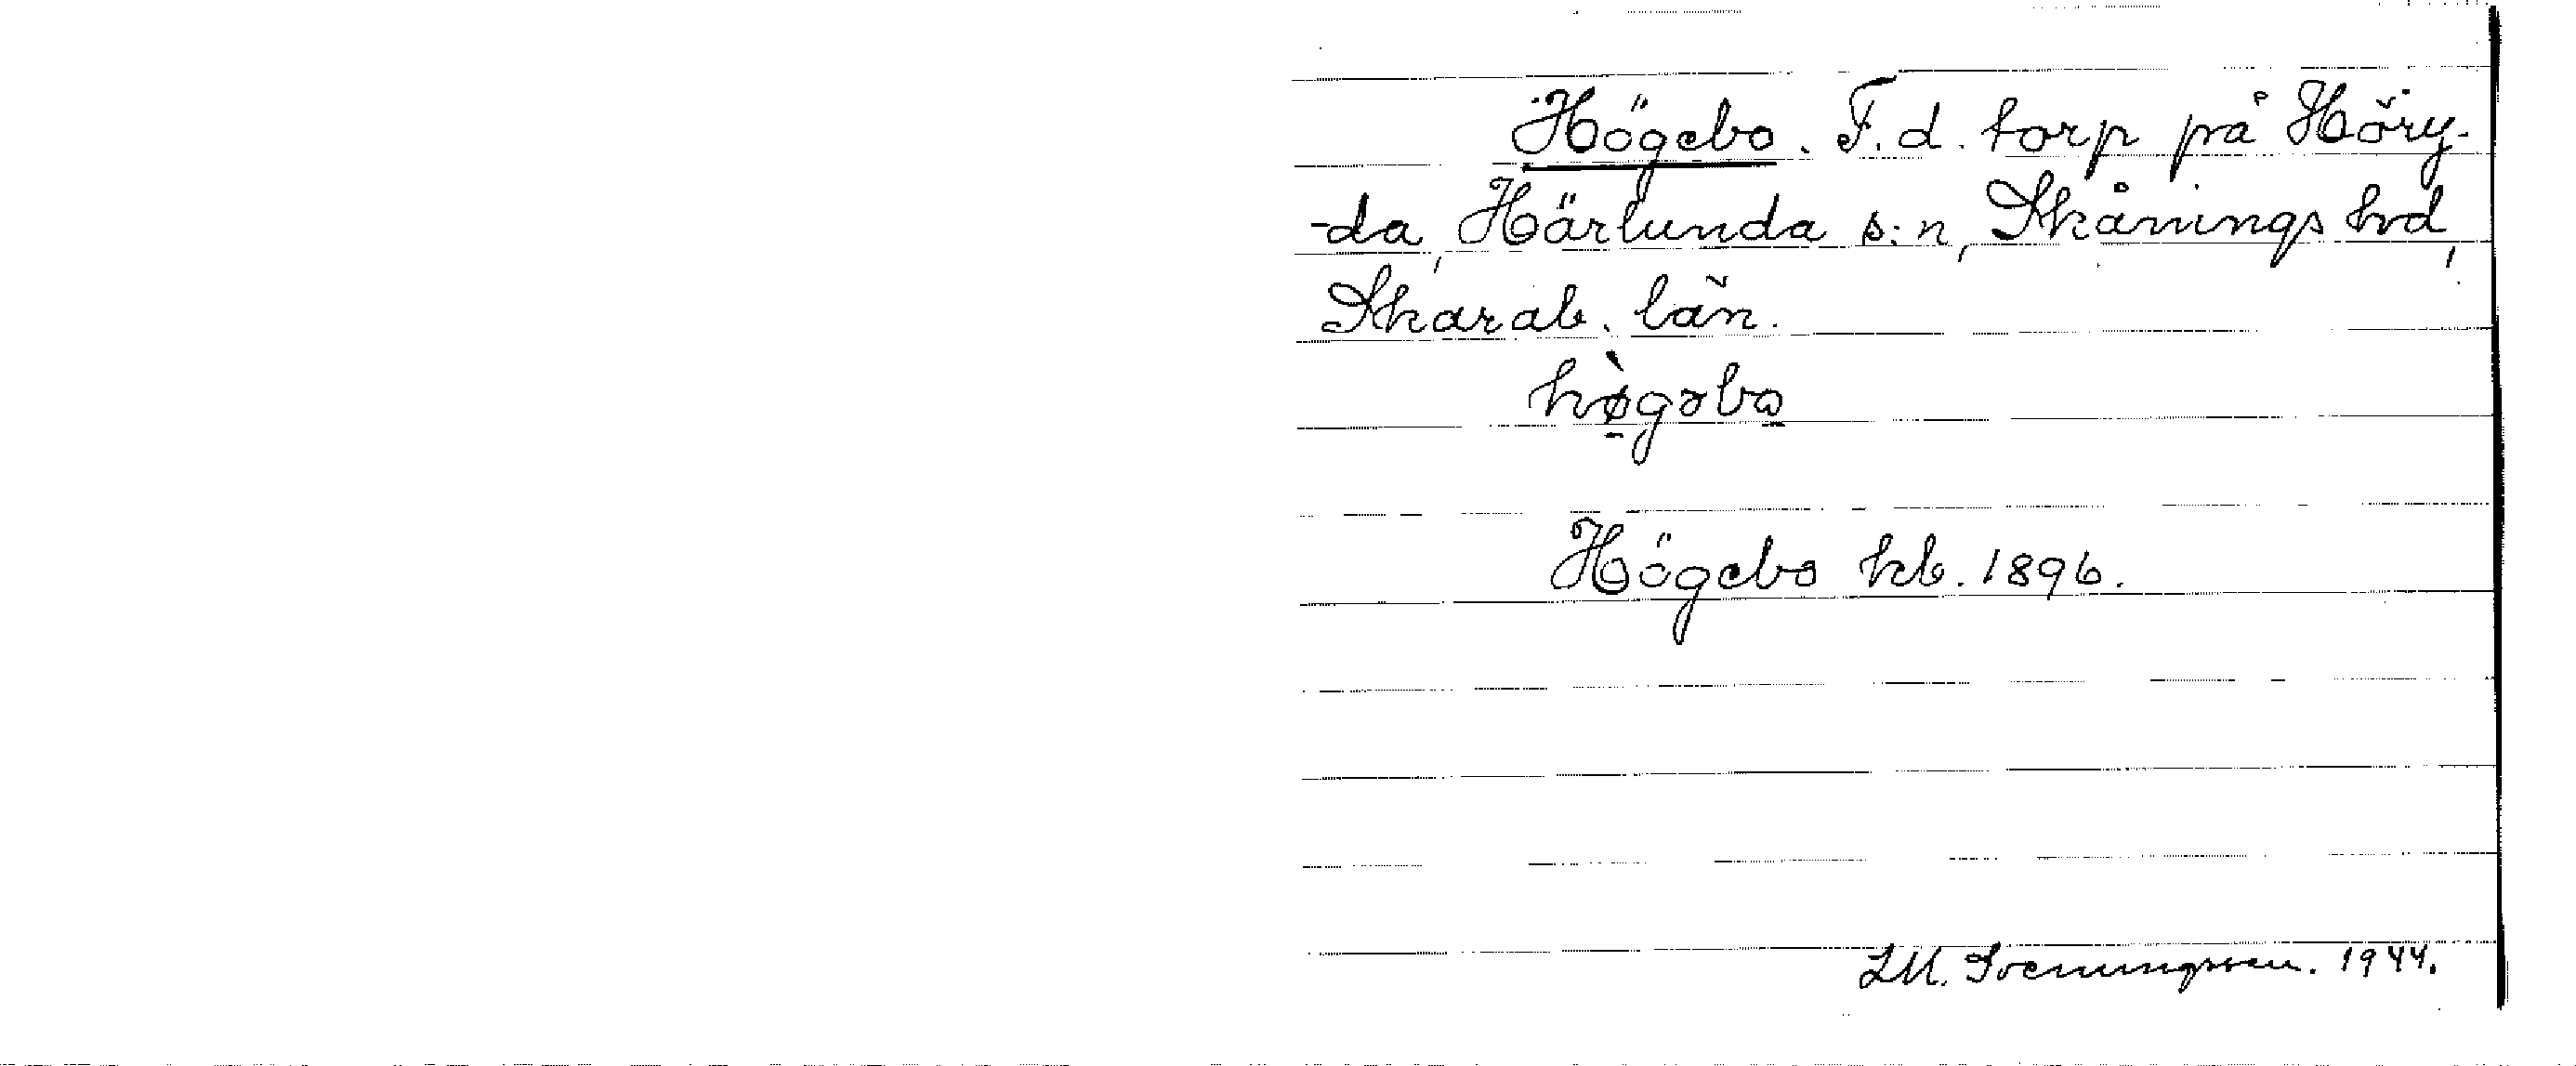 Högebo. F.d. torp på Höry-
-da, Härlunda s:n, Skånings hd,
Skarab. län.
hø̀gəbo
Högebo kb. 1896.
LM. Svenungsson. 1944.